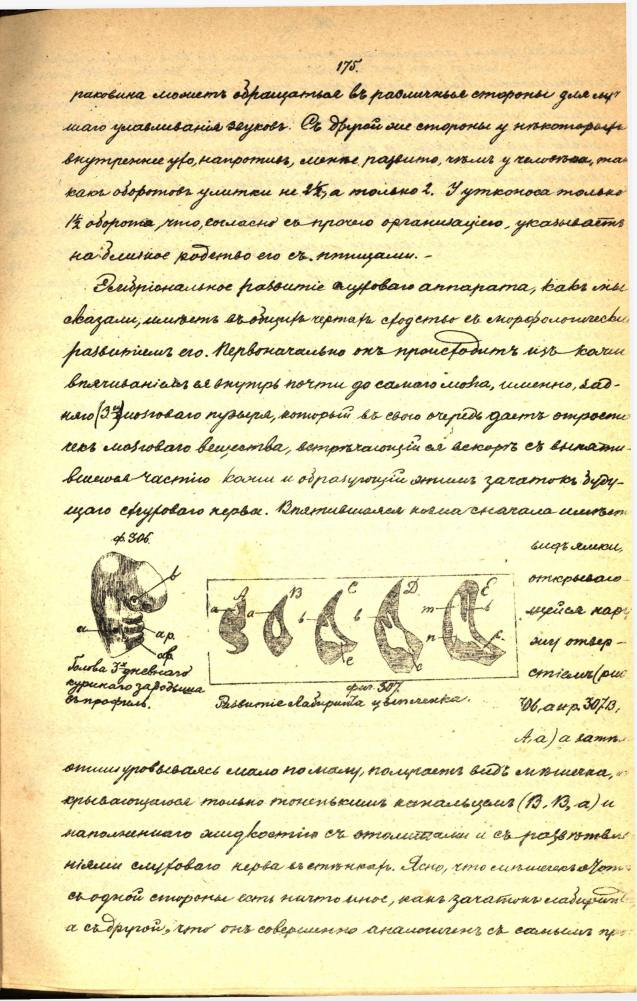 175.
раковина можетъ обращаться въ различныя стороны для луч-
шаго улавливанія звуковъ. Съ другой же стороны у нѣкоторыхъ
внутреннее ухо, напротивъ, менѣе развито, чѣмъ у человѣка, так
какъ оборотовъ улитки не 2½, а только 2. У утконоса только
1½ оборота, что, согласно съ прочею организаціею, указываетъ
на близкое родство его съ птицами. –
Эмбріональное развитіе слуховаго аппарата, какъ мы
сказали, имѣетъ въ общихъ чертахъ сходство съ морфологически
развитіемъ его. Первоначально онъ происходитъ изъ кожи
впячиваніемъ ея внутрь почти до самаго мозга, именно, зад-
няго (3го) мозговаго пузыря, который въ свою очередь даетъ отрости
чекъ мозговаго вещества, встрѣчающійся вскорѣ съ впяти-
вшеюся частію кожи и образующій этимъ зачатокъ буду-
щаго слуховаго нерва. Впятившаяся кожа сначала имѣетъ
видъ ямки,
открываю-
щейся нар
жу отвер-
стіемъ (рис
306, a и p. 307 B,
A, a) а затѣм
ф. 306.
b
a
ap.
ap.
Голова 3х дневнаго
куринаго зародыша
въ профиль.
A
a
B
a
C
b
c
D
b
c
E
m
b
n
c.
фиг. 307.
Развитіе Лабиринта цыпленка.
отшнуровываясь мало по малу, получаетъ видъ мѣшечка, о
крывающагося только тоненькимъ канальцемъ (B. B, a) и
наполненнаго жидкостію съ отолитами и съ развѣтвле
ніями слуховаго нерва въ стѣнкахъ. Ясно, что мѣшечекъ этотъ
съ одной стороны есть ничто иное, какъ зачатокъ лабиринта,
а съ другой, что онъ совершенно аналогиченъ съ самымъ про